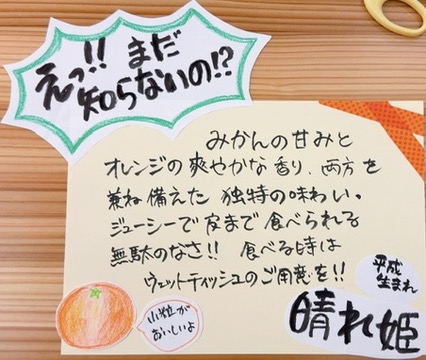 えっ!! まだ
知らないの!?
みかんの甘みと
オレンジの爽やかな香り、両方を
兼ね備えた 独特の味わい。
ジューシーで皮まで食べられる
無駄のなさ!! 食べる時は
ウェットティッシュのご用意を!!
小粒が
おいしいよ
平成
生まれ
晴れ姫